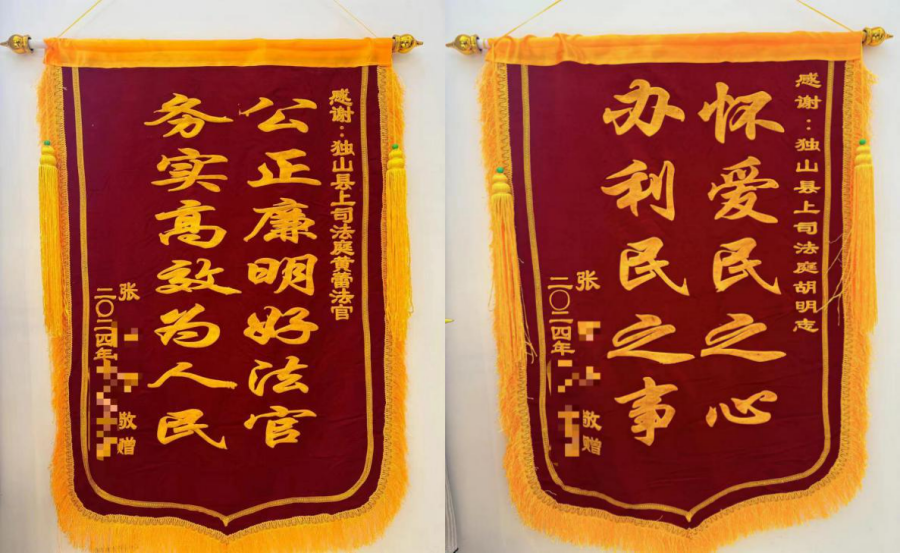 感谢：独山县上司法庭黄蕾法官
公正廉明好法官
务实高效为人民
张
敬赠
二〇二四年十
感谢：独山县上司法庭胡明志
怀爱民之心
办利民之事
张
敬赠
二〇二四年